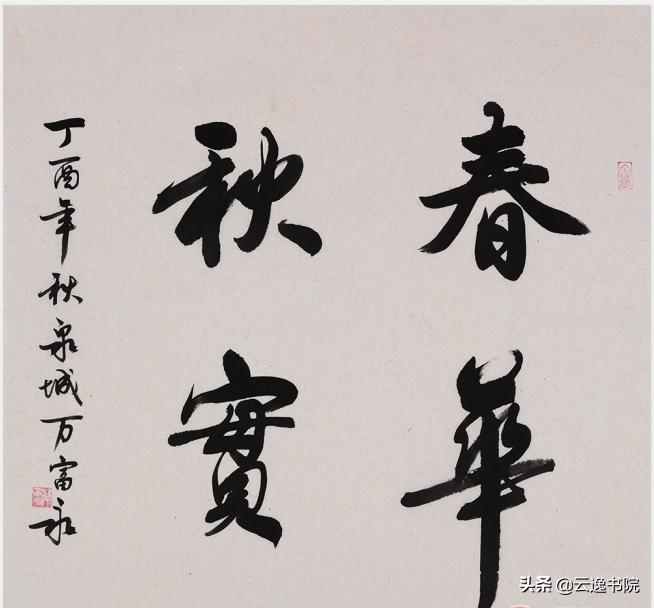 春華
秋實
丁酉年秋泉城万富永
头条 @云逸书院